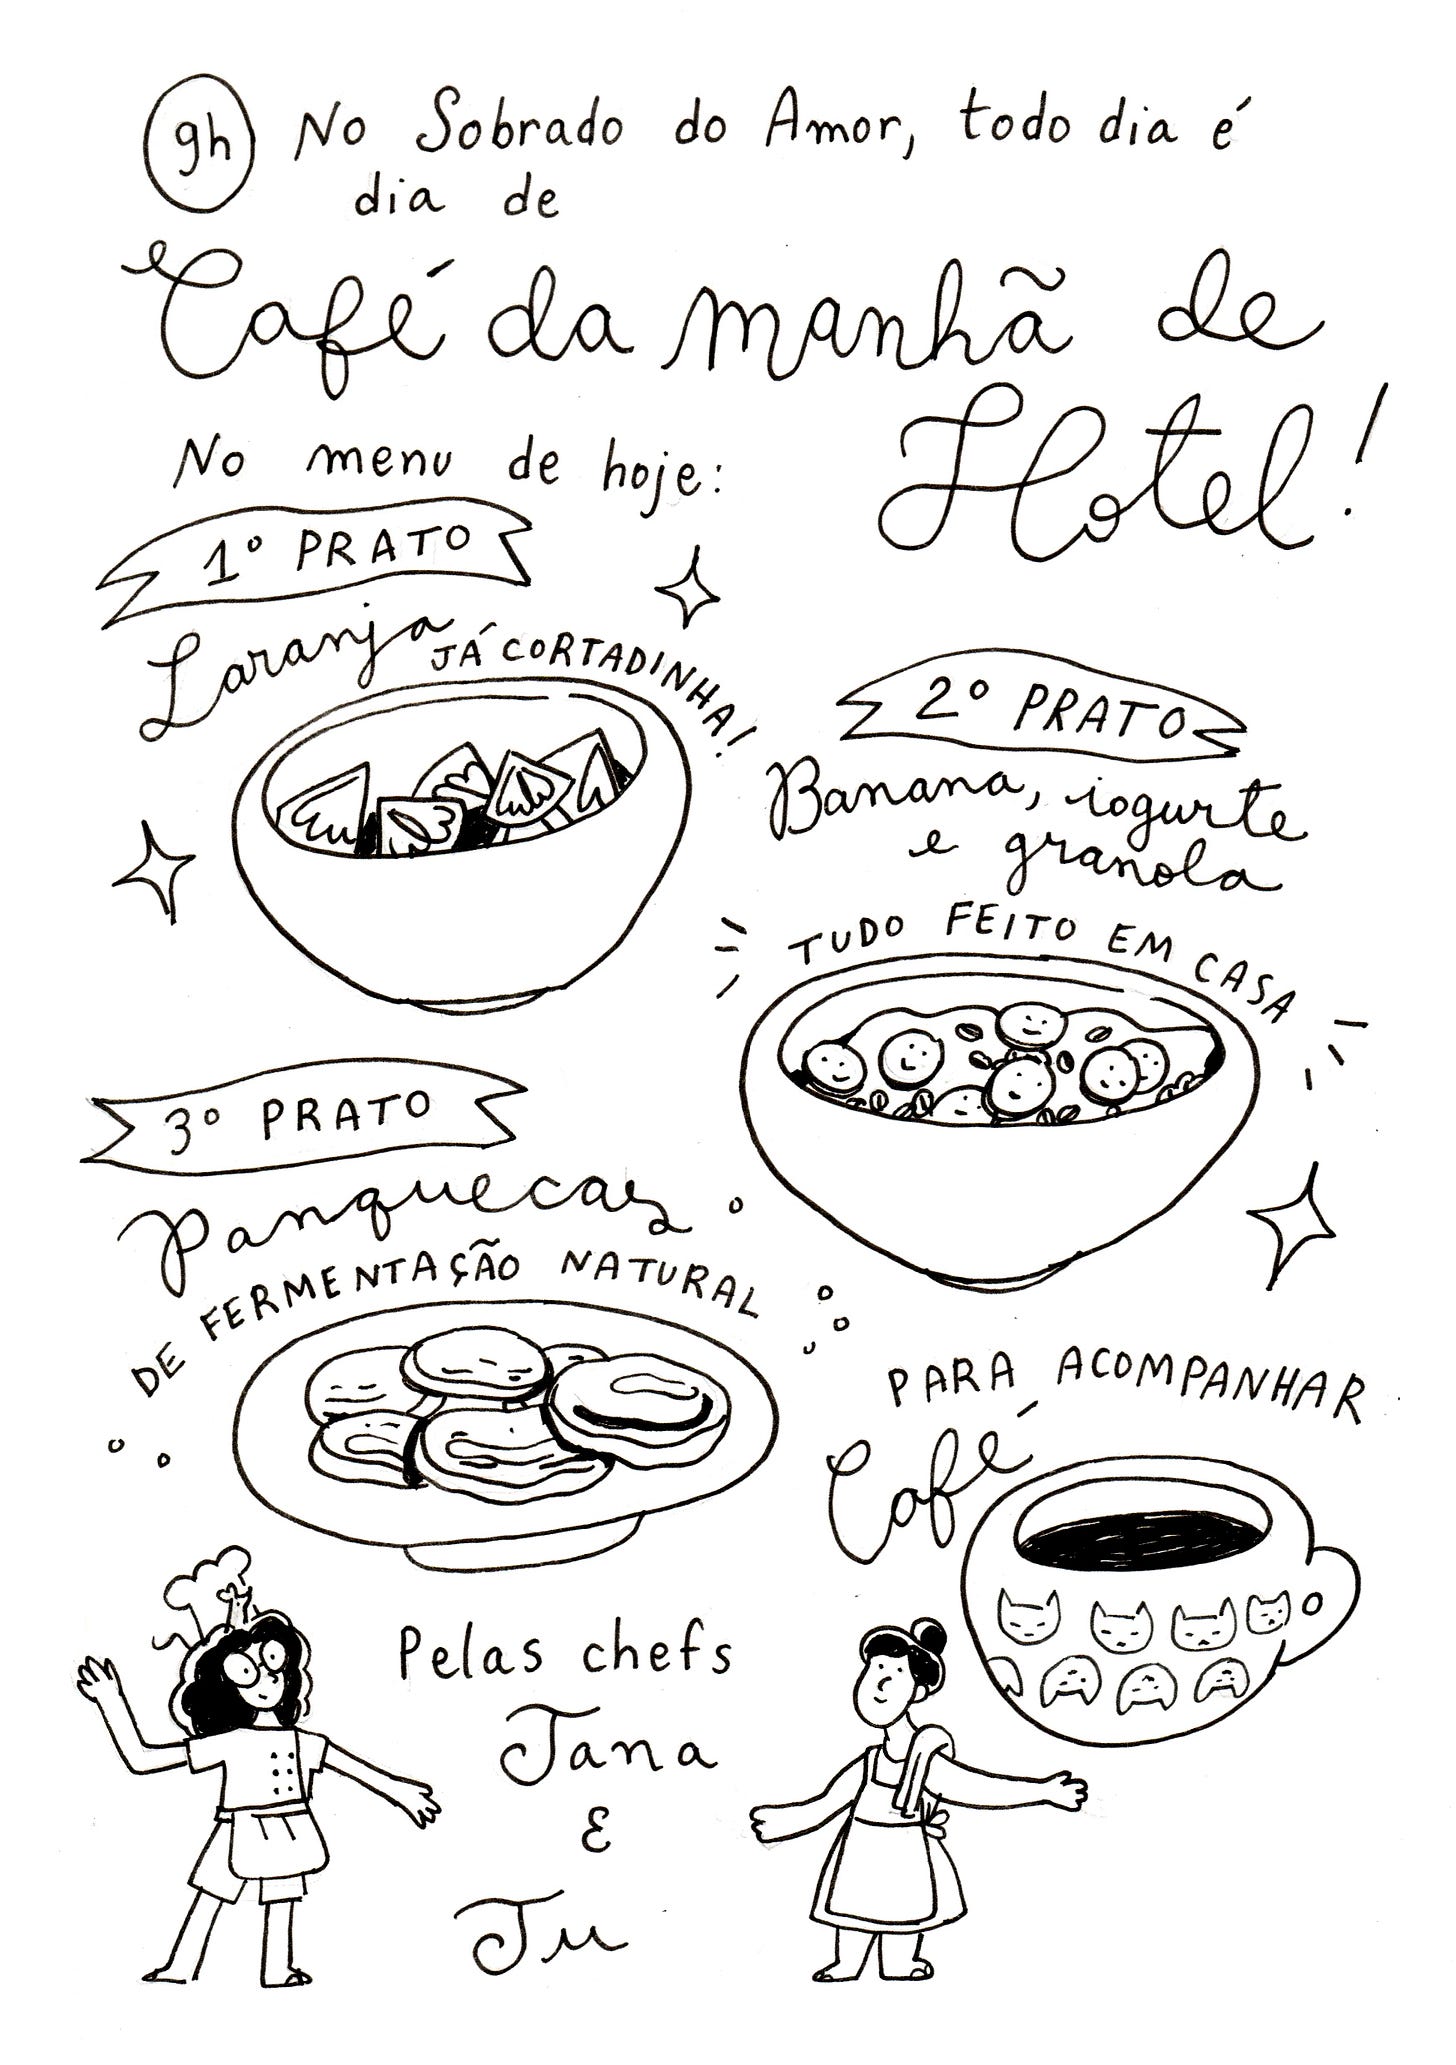 9h
No Sobrado do Amor, todo dia é
dia de
Café da manhã de
Hotel!
No menu de hoje:
1º PRATO
Laranja JÁ CORTADINHA!
2º PRATO
Banana, iogurte
e granola
TUDO FEITO EM CASA
3º PRATO
Panquecas
DE FERMENTAÇÃO NATURAL
PARA ACOMPANHAR
Café
Pelas chefs
Jana
E
Ju